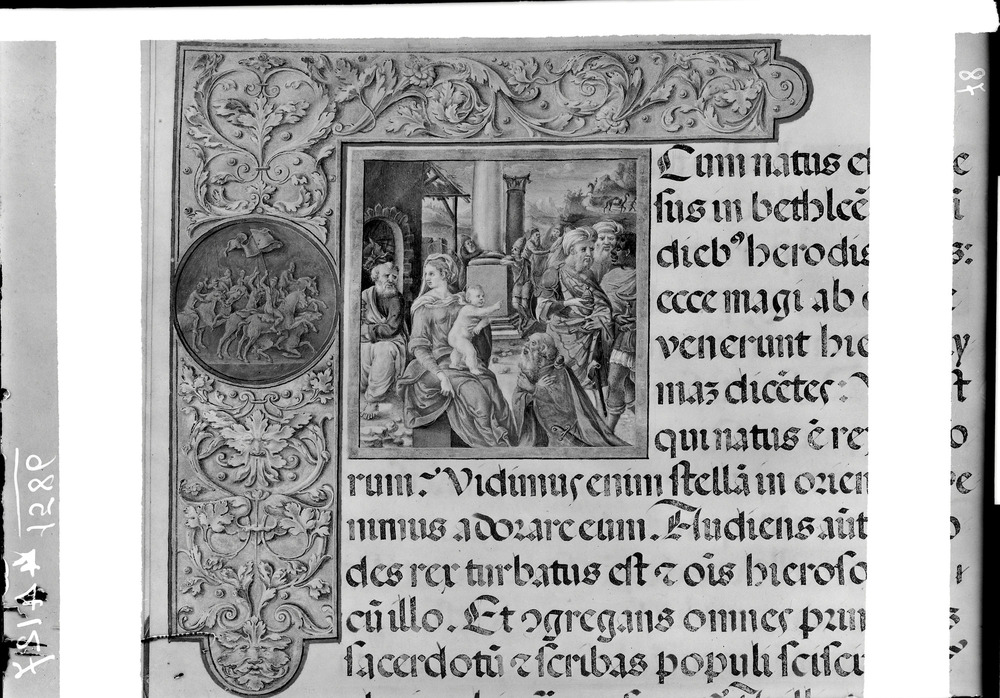 Cum natus e
sus in bethleē
dieb⁹ herodis s:
ecce magi ab
venerunt hie
maʒ dicētes:
qui natus ē re
rum? Vidimus enim stellā in orien
nimus adorare eum. Audiens aūt
des rex turbatus est ⁊ oīs hieroso
cū illo. Et ɔgregans omnes prin
sacerdotū ⁊ scribas populi scisci